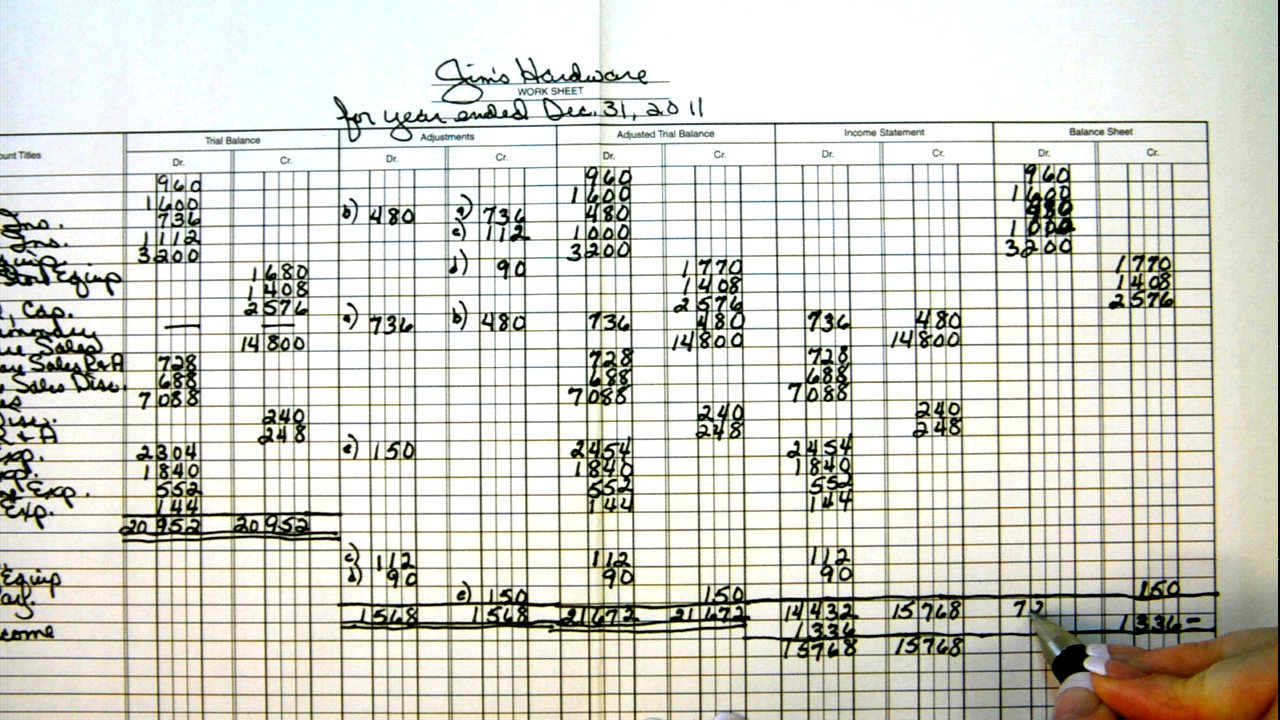 Jim's Hardware
WORK SHEET
for year ended Dec. 31, 2011
Trial Balance Adjustments Adjusted Trial Balance Income Statement Balance Sheet
unt Titles Dr. Cr. Dr. Cr. Dr. Cr. Dr. Cr. Dr. Cr.
960 960 960
1600 1600 1600
Ins. 736 b) 480 a) 736 480
Ins. 1112 c) 112 1000 1000
3200 3200 3200
Store Equip 1680 d) 90 1770 1770
1408 1408 1408
Cap. 2576 2576 2576
a) 736 b) 480 736 480 736 480
Sales 14800 14800 14800
Sales R+A 728 728 728
Sales Disc. 688 688 688
7088 7088 7088
Disc. 240 240 240
R+A 248 248 248
Exp. 2304 e) 150 2454 2454
Exp. 1840 1840 1840
Exp. 552 552 552
Exp. 144 144 144
20952 20952
c) 112 112 112
Equip d) 90 90 90
Pay. e) 150 150 150
1568 1568 21672 21672 14432 15768 72
come 1336 1336-
15768 15768